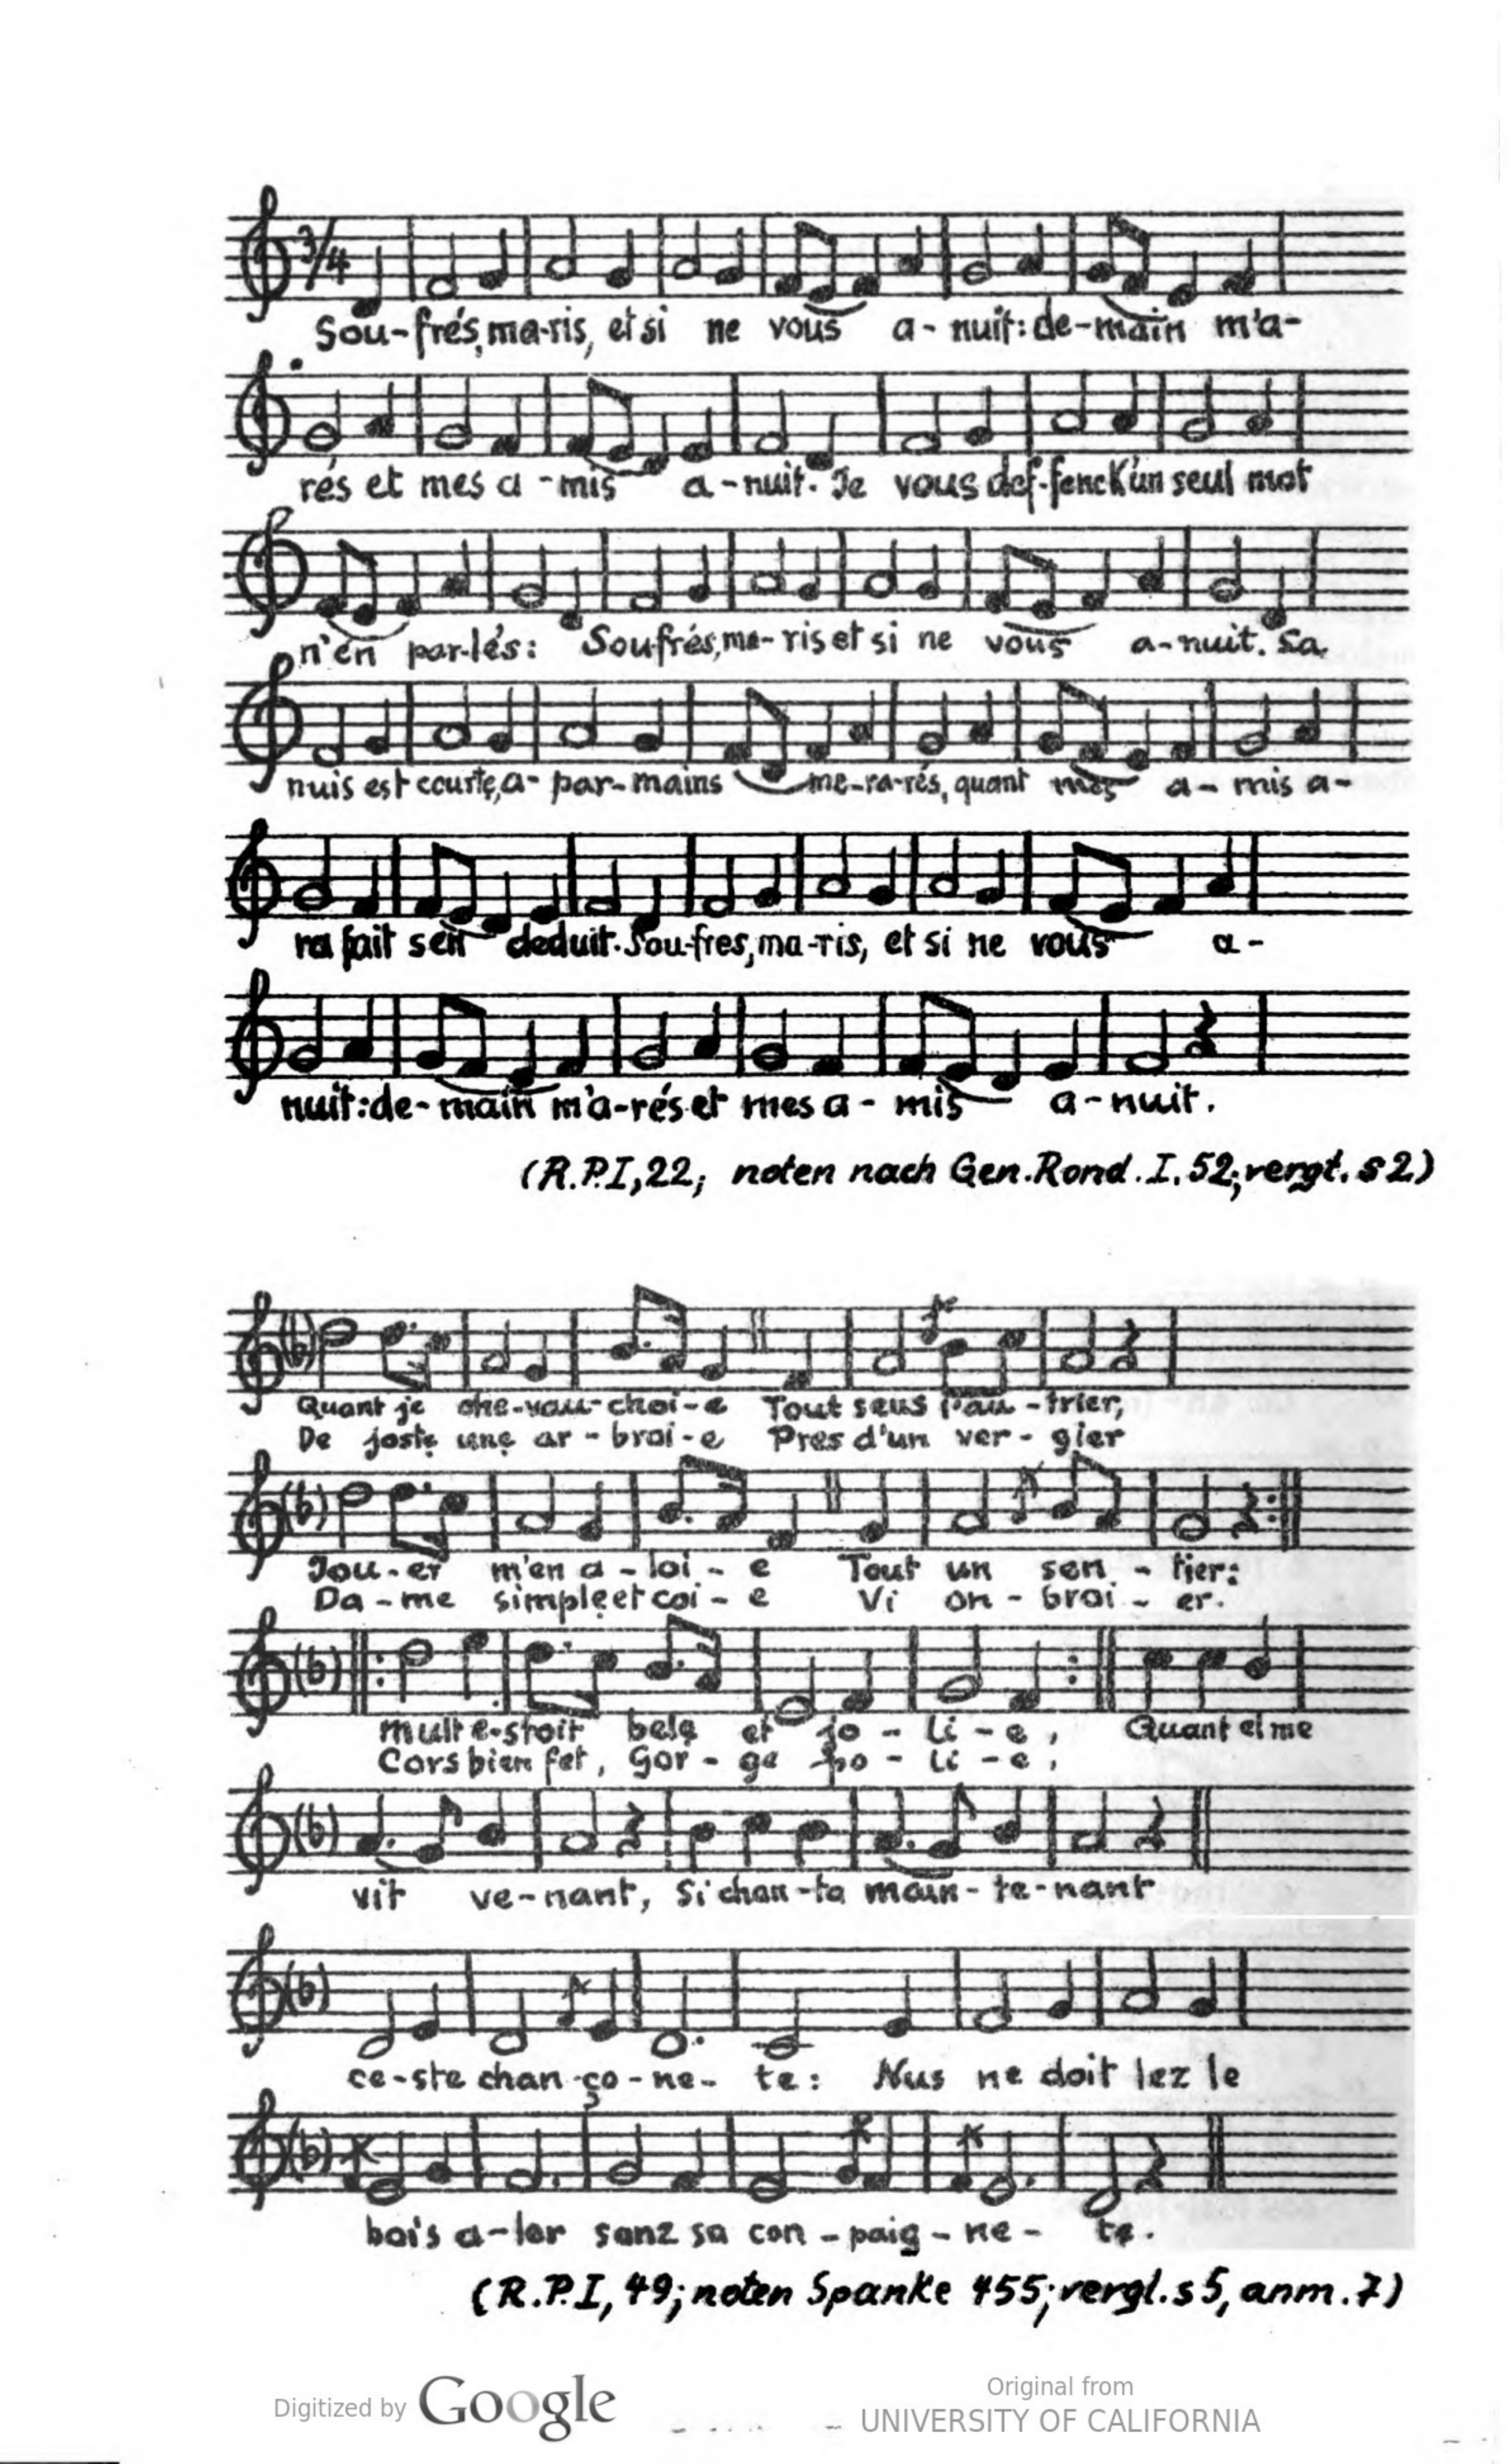 3/4
Sou-frés, ma-ris, et si ne vous a-nuit: de-main m'a-
rés et mes a-mis a-nuit. Je vous def-fenck'un seul mot
n'en par-lés: Soufrés, ma-ris et si ne vous a-nuit. Sa
nuis est courte, a-par-mains me-ra-rés, quant mes a-mis a-
ra fait sen deduit. Sou-fres, ma-ris, et si ne vous a-
nuit: de-main m'a-rés et mes a-mis a-nuit.
(R.P.I, 22; noten nach Gen. Rond. I. 52; vergt. s 2)
Quant je che-vau-choi-e Tout seus l'au-trier,
De joste une ar-broi-e Pres d'un ver-gier
Jou-er m'en a-loi-e Tout un sen-tier:
Da-me simple et coi-e Vi on-broi-er.
mult e-stoit bele et jo-li-e, Quant el me
Cors bien fet, Gor-ge po-li-e,
vit ve-nant, Si chan-ta main-te-nant
ce-ste chan-ço-ne-te: Nus ne doit lez le
bois a-ler sanz sa con-paig-ne-te.
(R.P.I, 49; noten Spanke 455; vergl. s 5, anm. 7)
Digitized by Google
Original from
UNIVERSITY OF CALIFORNIA